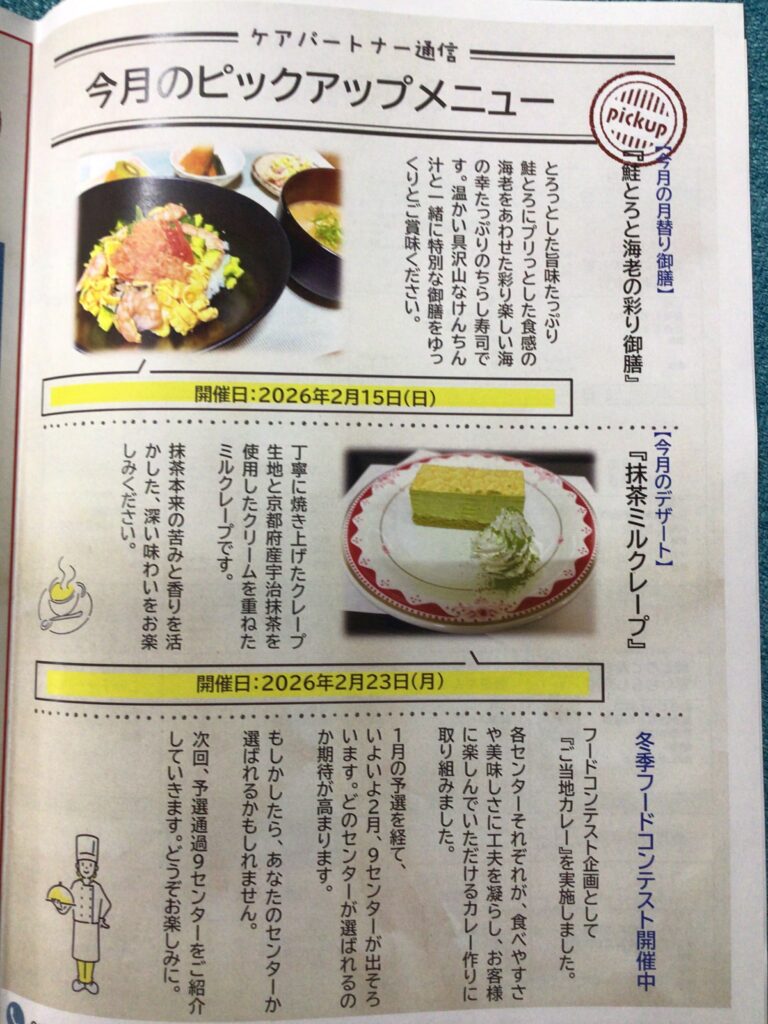 ケアパートナー通信
今月のピックアップメニュー
pickup
【今月の月替り御膳】
『鮭とろと海老の彩り御膳』
とろっとした旨味たっぷり
鮭とろにプリっとした食感の
海老をあわせた彩り楽しい海
の幸たっぷりのちらし寿司で
す。温かい具沢山なけんちん
汁と一緒に特別な御膳をゆっ
くりとご賞味ください。
開催日：2026年2月15日(日)
【今月のデザート】
『抹茶ミルクレープ』
丁寧に焼き上げたクレープ
生地と京都府産宇治抹茶を
使用したクリームを重ねた
ミルクレープです。
抹茶本来の苦みと香りを活
かした、深い味わいをお楽
しみください。
開催日：2026年2月23日(月)
冬季フードコンテスト開催中
フードコンテスト企画として
『ご当地カレー』を実施しました。
各センターそれぞれが、食べやすさ
や美味しさに工夫を凝らし、お客様
に楽しんでいただけるカレー作りに
取り組みました。
1月の予選を経て、
いよいよ2月、9センターが出そろ
います。どのセンターが選ばれるの
か期待が高まります。
もしかしたら、あなたのセンターか
選ばれるかもしれません。
次回、予選通過9センターをご紹介
していきます。どうぞお楽しみに。